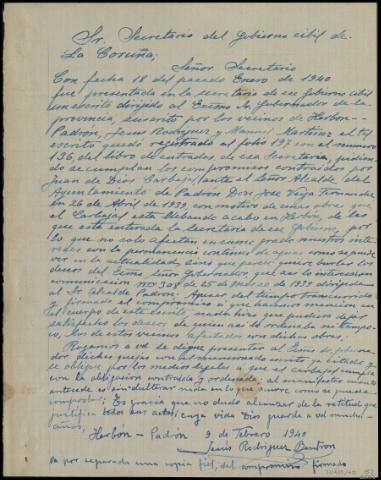 Sr. Secretario del Gobierno cibil de
La Coruña;
Señor Secretario
Con fecha 18 del pasado Enero de 1940
fue presentada en la secretaria de ese Gobierno cibil
un escrito dirijido al Excmo Sr. Gobernador de la
provincia, suscrito por los vecinos de Herbón-
Padrón, Jesus Rodriguez y Manuel Martinez el tal
escrito quedó registrado al folio 197 con el numero
136, del libro de entradas de esa Secretaria, pidiendo
se cumplan los compromisos contraidos por
Juan de Dios Carbajal ante el Señor Alcalde del
Ayuntamiento de Padrón Don José Vieja Fernandez
en 26 de Abril de 1939, con motivo de unas obras que
el Carbajal esta llebando acabo en Herbón, de las
que está enterada la Secretaria de ese Gobierno, por
lo que no solo afectan en sumo grado nuestros inte
reses con la permanencia continua de aguas como se puede
ver en la actualidad, sino que parece querer burlar los
deseos del Excmo señor Gobernador, que asi lo interesa en
comunicación nº 308 de 25 de marzo de 1939 dirijida
al Sr Alcalde de Padrón. Apesar del tiempo transcurrido
y firmado el compromiso a que hacemos mención en
el cuerpo de este escrito, nada hizo que pudiera dejar
satisfechos los deseos de quien asi lo ordenaba en tiempo,
los de estos vecinos afectados con dichas obras,
Rogamos a vd se digne presentar al Excmo Sr. Goberna
dor dichas quejas con el mencionado escrito ya citado y
se obligue por los medios legales a que el Carbajal cumpla
con la obligación contraida y ordenada, al manifestar cuanto
antecede es sin adulterar nada en lo que ocurre como se puede
comprobar; Es gracia que no dudo alcanzar de la rectitud que
justifica todos sus actos; cuya vida Dios guarde a vd muchos
años,
Herbón - Padrón 9 de Febrero 1940
Jesús Rodriguez
Va por separado una copia fiel, del compromiso firmado